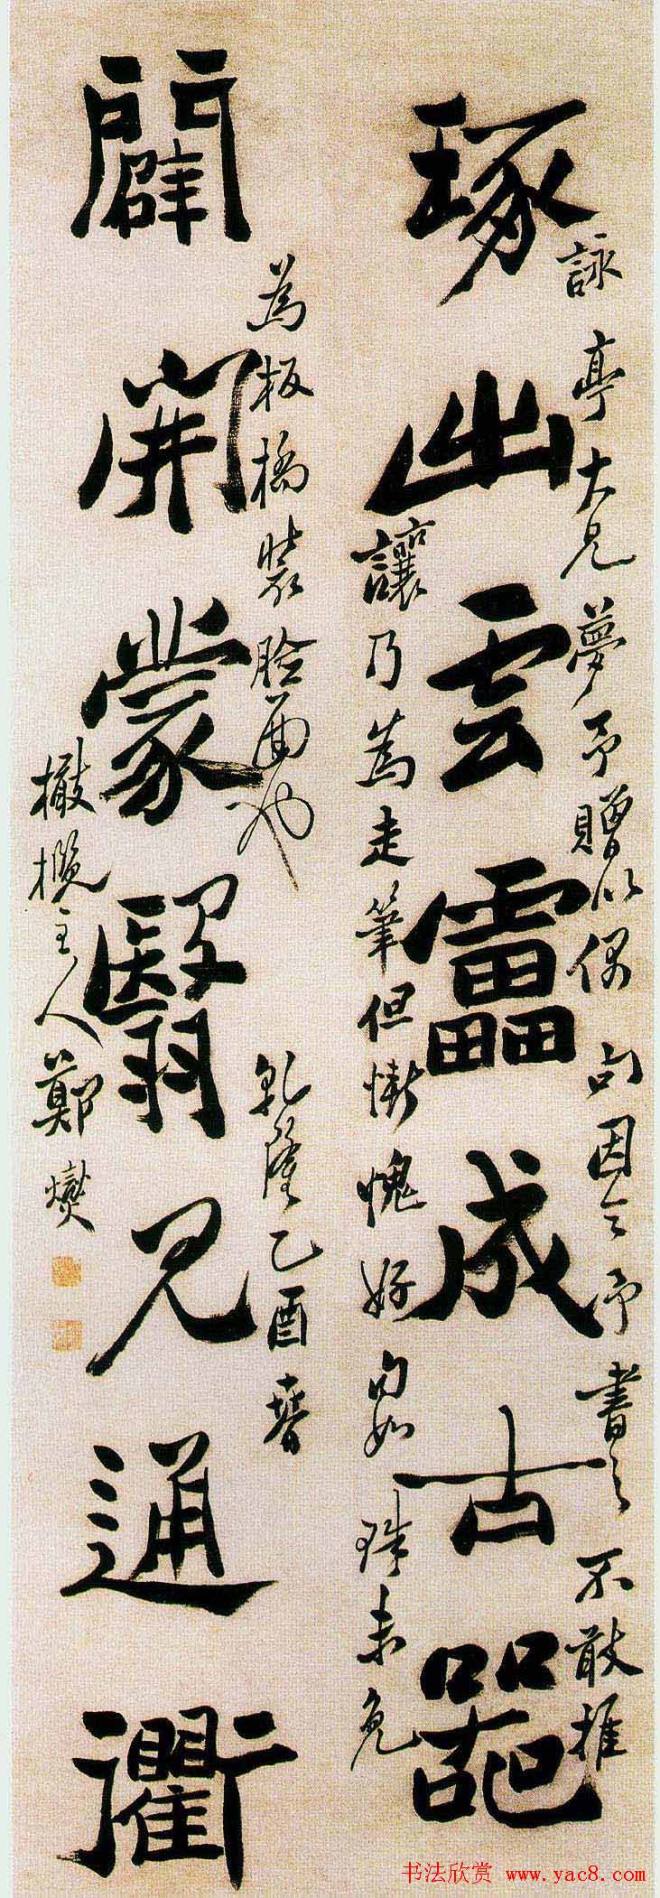 琢出雲靁成古器
闢開蒙翳見通衢
詠亭大兄夢予贈以偶句因令予書之不敢推
讓乃為走筆但慚愧好句如珠未免
為板橋裝臉面也 乾隆乙酉春
橄欖主人鄭燮
书法欣赏 www.yac8.com